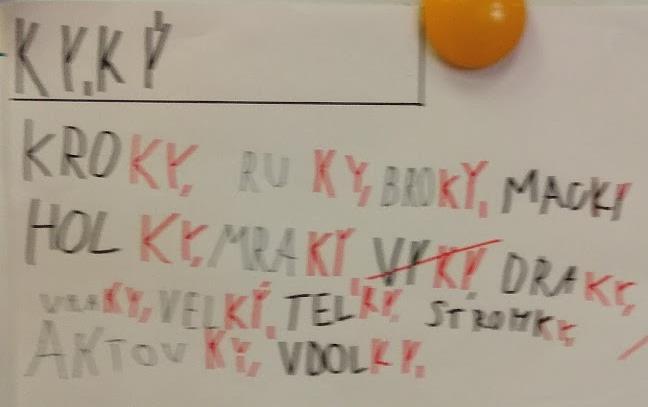 KY, KÝ
KROKY, RUKY, BROKY, MACKY
HOLKY, MRAKY VYKY DRAKY,
VRAKY, VELKÝ, TEL'KY, STROMKY,
AKTOVKY, VDOLKY.